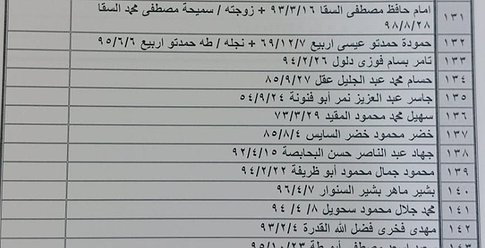 ١٣١ امام حافظ مصطفى السقا ٩٣/٣/١٦ + زوجته / سميحة مصطفى محمد السقا
٩٨/٨/٢٨
١٣٢ حمودة حمدتو عيسى اربيع ٦٩/١٢/٧ + نجله / طه حمدتو اربيع ٩٥/٦/٦
١٣٣ تامر بسام فوزى دلول ٩٤/٢/٢٦
١٣٤ حسام محمد عبد الجليل عقل ٨٥/٩/٢٧
١٣٥ جاسر عبد العزيز نمر أبو فنونة ٥٤/٩/٢٤
١٣٦ سهيل محمد محمود المقيد ٧٣/٣/٢٩
١٣٧ خضر محمود خضر السايس ٨٥/٨/٤
١٣٨ جهاد عبد الناصر حسن البحابصة ٩٢/٤/١٥
١٣٩ محمود جمال محمود أبو ظريفة ٩٤/٢/٢٢
١٤٠ بشير ماهر بشير السنوار ٩٦/٤/٧
١٤١ محمد جلال محمود سحويل ٨/٤ /٩٤
١٤٢ مهدى فخرى فضل الله القدرة ٩٣/٢/٤
١٤٣ ٩٥/١٠/٢٣